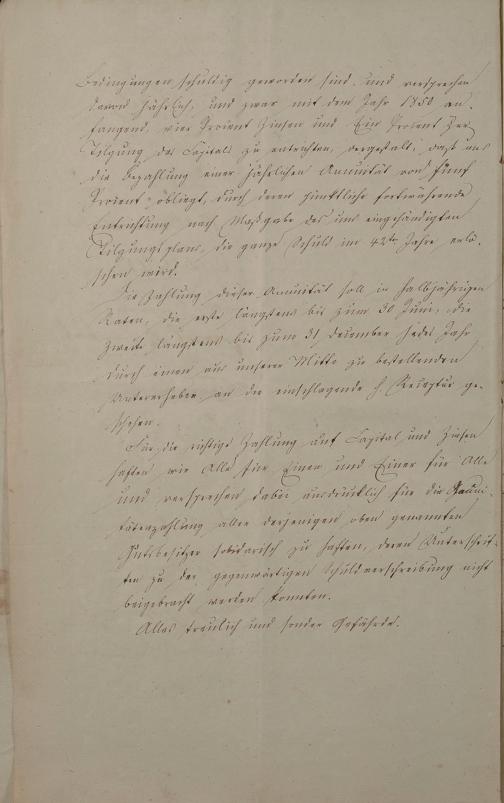 Bedingungen schuldig geworden sind und versprechen
davon jährlich, und zwar mit dem Jahr 1850 an-
fangend, vier Procent Zinsen und Ein Procent Zur
Tilgung des Capitals zu entrichten, dergestalt, daß uns
die Bezahlung einer jährlichen Annuität von fünf
Procent obliegt, durch deren pünktliche fortwährende
Entrichtung nach Maßgabe des uns eingehändigten
Tilgungsplans, die ganze Schuld im 42ten Jahre erlö-
schen wird.
Die Zahlung dieser Annuität soll in halbjährigen
Raten, die erste längstens bis zum 30 Juni, die
Zweite längstens bis zum 31 December jedes Jahr
durch einen aus unserer Mitte zu bestellenden
Untererheber an die einschlagende H. Receptur ge-
schehen.
Für die richtige Zahlung auf Capital und Zinsen
haften wir Alle für Einen und Einer für Alle
und versprechen dabei ausdrücklich für die Annui-
tätenzahlung aller derjenigen oben genannten
Gutsbesitzer solidarisch zu haften, deren Unterschrif-
ten zu der gegenwärtigen Schuldverschreibung nicht
beigebracht werden konnten.
Alles treulich und sonder Gefährde.